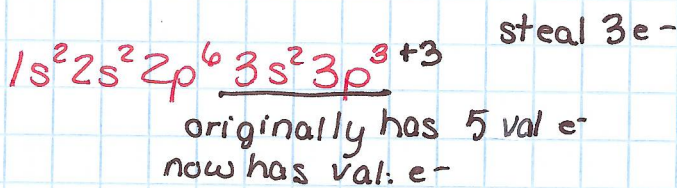 steal 3e-
1s²2s²2p⁶3s²3p³ +3
originally has 5 val e-
now has val: e-